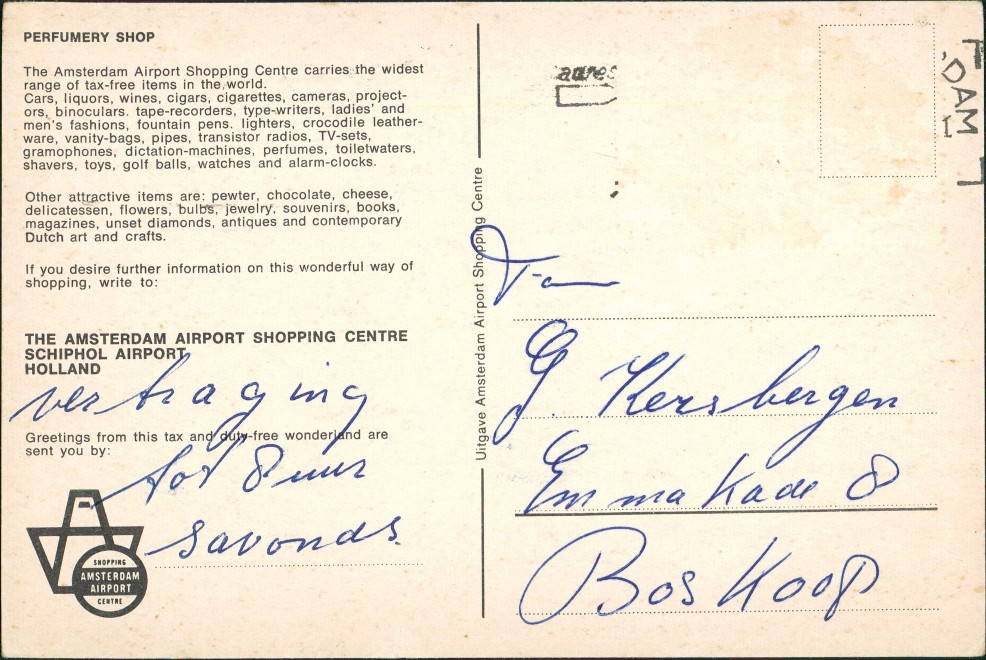 PERFUMERY SHOP
The Amsterdam Airport Shopping Centre carries the widest
range of tax-free items in the world.
Cars, liquors, wines, cigars, cigarettes, cameras, project-
ors, binoculars. tape-recorders, type-writers, ladies' and
men's fashions, fountain pens. lighters, crocodile leather-
ware, vanity-bags, pipes, transistor radios, TV-sets,
gramophones, dictation-machines, perfumes, toiletwaters,
shavers, toys, golf balls, watches and alarm-clocks.
Other attractive items are: pewter, chocolate, cheese,
delicatessen, flowers, bulbs, jewelry, souvenirs, books,
magazines, unset diamonds, antiques and contemporary
Dutch art and crafts.
If you desire further information on this wonderful way of
shopping, write to:
THE AMSTERDAM AIRPORT SHOPPING CENTRE
SCHIPHOL AIRPORT
HOLLAND
vertraging
Greetings from this tax and duty-free wonderland are
sent you by:
tot 8 uur
savonds.
SHOPPING
AMSTERDAM
AIRPORT
CENTRE
Uitgave Amsterdam Airport Shopping Centre
adres
'DAM
Fam
G. Kersbergen
Emmakade 8
Boskoop